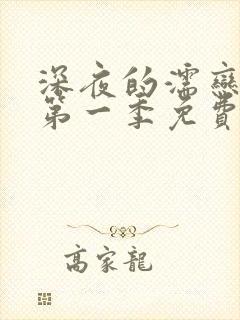 深夜的濡戀
第一季免費
高家龍